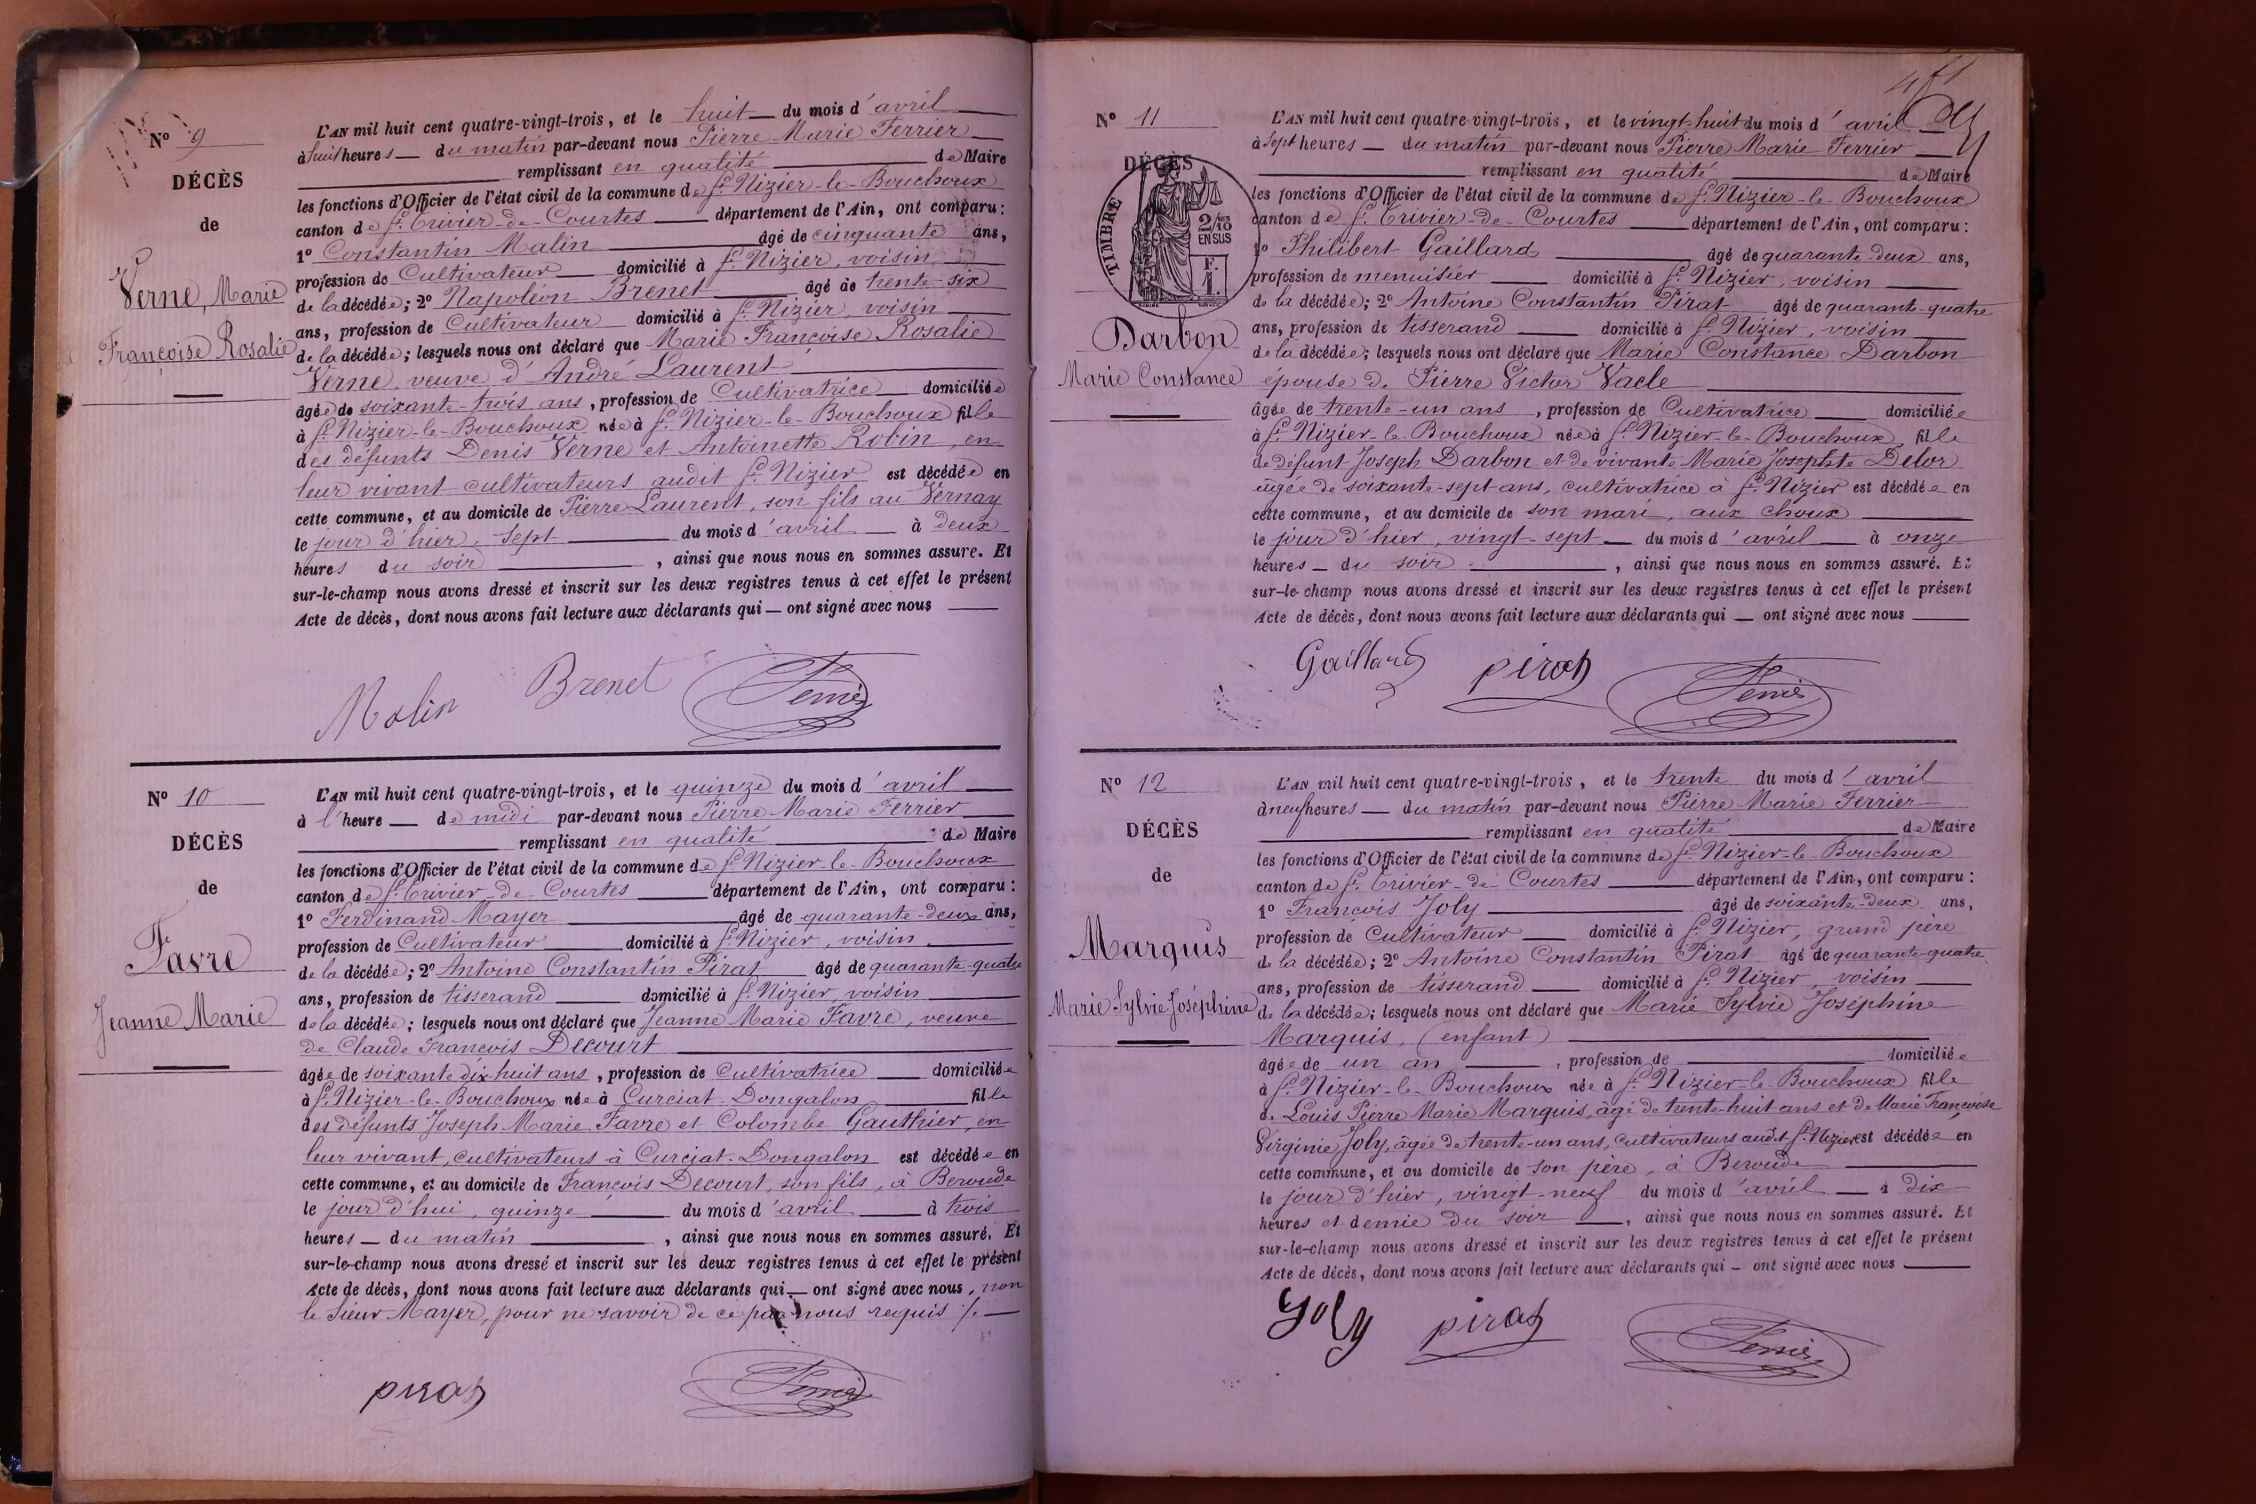 N° 9
DÉCÈS
de
Verne, Marie
Françoise Rosalie
L'AN mil huit cent quatre-vingt-trois, et le huit du mois d'avril
à huit heures du matin par-devant nous Pierre Marie Ferrier
remplissant en qualité de Maire
les fonctions d'Officier de l'état civil de la commune de St Nizier-le-Bouchoux
canton de St Trivier-de-Courtes département de l'Ain, ont comparu:
1° Constantin Malin âgé de cinquante ans,
profession de Cultivateur domicilié à St Nizier, voisin
de la décédée; 2° Napoléon Brenet âgé de trente-six
ans, profession de Cultivateur domicilié à St Nizier, voisin
de la décédée; lesquels nous ont déclaré que Marie Françoise Rosalie
Verne, veuve d'André Laurent
âgée de soixante-trois ans, profession de Cultivatrice domiciliée
à St Nizier-le-Bouchoux née à St Nizier-le-Bouchoux fille
des défunts Denis Verne et Antoinette Robin, en
leur vivant cultivateurs audit St Nizier est décédée en
cette commune, et au domicile de Pierre Laurent, son fils au Vernay
le jour d'hier, sept du mois d'avril à deux
heures du soir, ainsi que nous nous en sommes assuré. Et
sur-le-champ nous avons dressé et inscrit sur les deux registres tenus à cet effet le présent
Acte de décès, dont nous avons fait lecture aux déclarants qui — ont signé avec nous
Malin Brenet Ferrier
N° 10
DÉCÈS
de
Favre
Jeanne Marie
L'AN mil huit cent quatre-vingt-trois, et le quinze du mois d'avril
à l'heure de midi par-devant nous Pierre Marie Ferrier
remplissant en qualité de Maire
les fonctions d'Officier de l'état civil de la commune de St Nizier-le-Bouchoux
canton de St Trivier-de-Courtes département de l'Ain, ont comparu:
1° Ferdinand Mayer âgé de quarante-deux ans,
profession de Cultivateur domicilié à St Nizier, voisin
de la décédée; 2° Antoine Constantin Pirat âgé de quarante-quatre
ans, profession de tisserand domicilié à St Nizier, voisin
de la décédée; lesquels nous ont déclaré que Jeanne Marie Favre, veuve
de Claude François Decourt
âgée de soixante dix huit ans, profession de Cultivatrice domiciliée
à St Nizier-le-Bouchoux née à Curciat-Dongalon fille
des défunts Joseph Marie Favre et Colombe Gauthier, en
leur vivant, cultivateurs à Curciat-Dongalon est décédée en
cette commune, et au domicile de François Decourt, son fils, à Beroude
le jour d'hui, quinze du mois d'avril à trois
heures du matin, ainsi que nous nous en sommes assuré. Et
sur-le-champ nous avons dressé et inscrit sur les deux registres tenus à cet effet le présent
Acte de décès, dont nous avons fait lecture aux déclarants qui — ont signé avec nous, non
le sieur Mayer, pour ne savoir de ce par nous requis /.
pirat Ferrier
N° 11
DÉCÈS
TIMBRE
2/10
EN SUS
F.
1.
Darbon
Marie Constance
L'AN mil huit cent quatre-vingt-trois, et le vingt-huit du mois d'avril
à sept heures du matin par-devant nous Pierre Marie Ferrier
remplissant en qualité de Maire
les fonctions d'Officier de l'état civil de la commune de St Nizier-le-Bouchoux
canton de St Trivier-de-Courtes département de l'Ain, ont comparu:
1° Philibert Gaillard âgé de quarante deux ans,
profession de menuisier domicilié à St Nizier, voisin
de la décédée; 2° Antoine Constantin Pirat âgé de quarante-quatre
ans, profession de tisserand domicilié à St Nizier, voisin
de la décédée; lesquels nous ont déclaré que Marie Constance Darbon
épouse de Pierre Victor Vacle
âgée de trente-un ans, profession de Cultivatrice domiciliée
à St Nizier-le-Bouchoux née à St Nizier-le-Bouchoux, fille
de défunt Joseph Darbon et de vivante Marie Josephte Delor
âgée de soixante-sept ans, cultivatrice à St Nizier est décédée en
cette commune, et au domicile de son mari, aux choux
le jour d'hier, vingt-sept du mois d'avril à onze
heures du soir, ainsi que nous nous en sommes assuré. Et
sur-le-champ nous avons dressé et inscrit sur les deux registres tenus à cet effet le présent
Acte de décès, dont nous avons fait lecture aux déclarants qui — ont signé avec nous
Gaillard pirat Ferrier
N° 12
DÉCÈS
de
Marquis
Marie Sylvie Joséphine
L'AN mil huit cent quatre-vingt-trois, et le trente du mois d'avril
à neuf heures du matin par-devant nous Pierre Marie Ferrier
remplissant en qualité de Maire
les fonctions d'Officier de l'état civil de la commune de St Nizier-le-Bouchoux
canton de St Trivier-de-Courtes département de l'Ain, ont comparu:
1° François Joly âgé de soixante-deux ans,
profession de Cultivateur domicilié à St Nizier, grand père
de la décédée; 2° Antoine Constantin Pirat âgé de quarante-quatre
ans, profession de tisserand domicilié à St Nizier, voisin
de la décédée; lesquels nous ont déclaré que Marie Sylvie Joséphine
Marquis, (enfant)
âgée de un an, profession de domiciliée
à St Nizier-le-Bouchoux née à St Nizier-le-Bouchoux fille
de Louis Pierre Marie Marquis, âgé de trente-huit ans et de Marie Françoise
Virginie Joly, âgée de trente-un ans, cultivateurs audit St Nizier est décédée en
cette commune, et au domicile de son père, à Beroude
le jour d'hier, vingt-neuf du mois d'avril à dix
heures et demie du soir, ainsi que nous nous en sommes assuré. Et
sur-le-champ nous avons dressé et inscrit sur les deux registres tenus à cet effet le présent
Acte de décès, dont nous avons fait lecture aux déclarants qui — ont signé avec nous
Joly pirat Ferrier